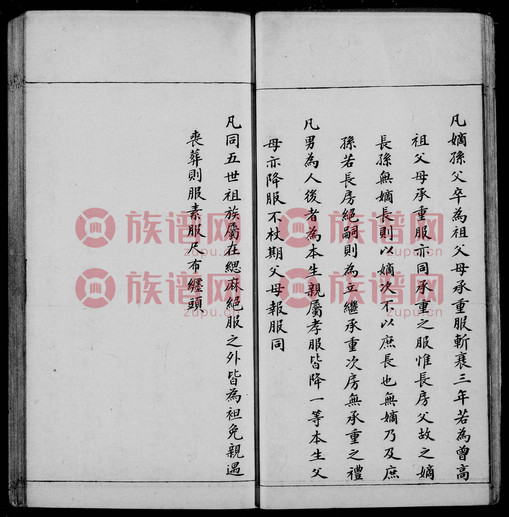 凡嫡孫父卒為祖父母承重服斬衰三年若為曾高
祖父母承重服亦同承重之服惟長房父故之嫡
長孫無嫡長則以嫡次不以庶長也無嫡乃及庶
孫若長房絕嗣則為立繼承重次房無承重之禮
凡男為人後者為本生親屬孝服皆降一等本生父
母亦降服不杖期父母報服同
凡同五世祖族屬在緦麻絕服之外皆為袒免親遇
喪葬則服素服尺布纏頭
族谱网 族谱网
zupu.cn zupu.cn
族谱网 族谱网
zupu.cn zupu.cn